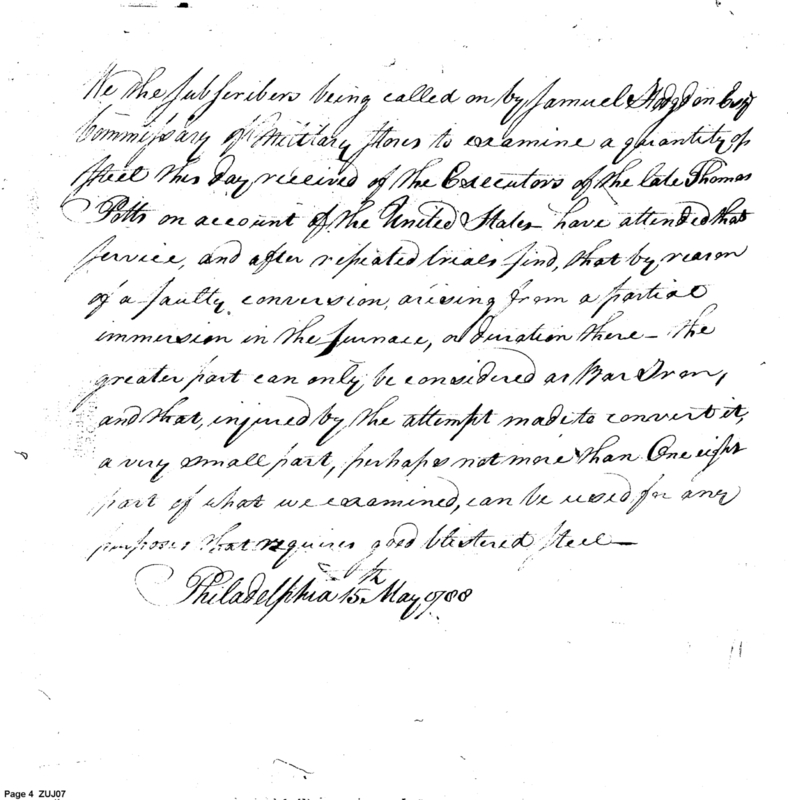 We the subscribers being called on by Samuel Hodgdon Esqr
Commissary of Military stores to examine a quantity of
steel this day received of the Executors of the late Thomas
Potts on account of the United States have attended that
service, and after repeated trials find, that by reason
of a faulty conversion, arising from a partial
immersion in the furnace, or duration there — the
greater part can only be considered as Bar Iron,
and that, injured by the attempt made to convert it,
a very small part, perhaps not more than One eight
part of what we examined, can be used for any
purposes that requires good blistered steel —
Philadelphia 15th May 1788
Page 4 ZUJ07